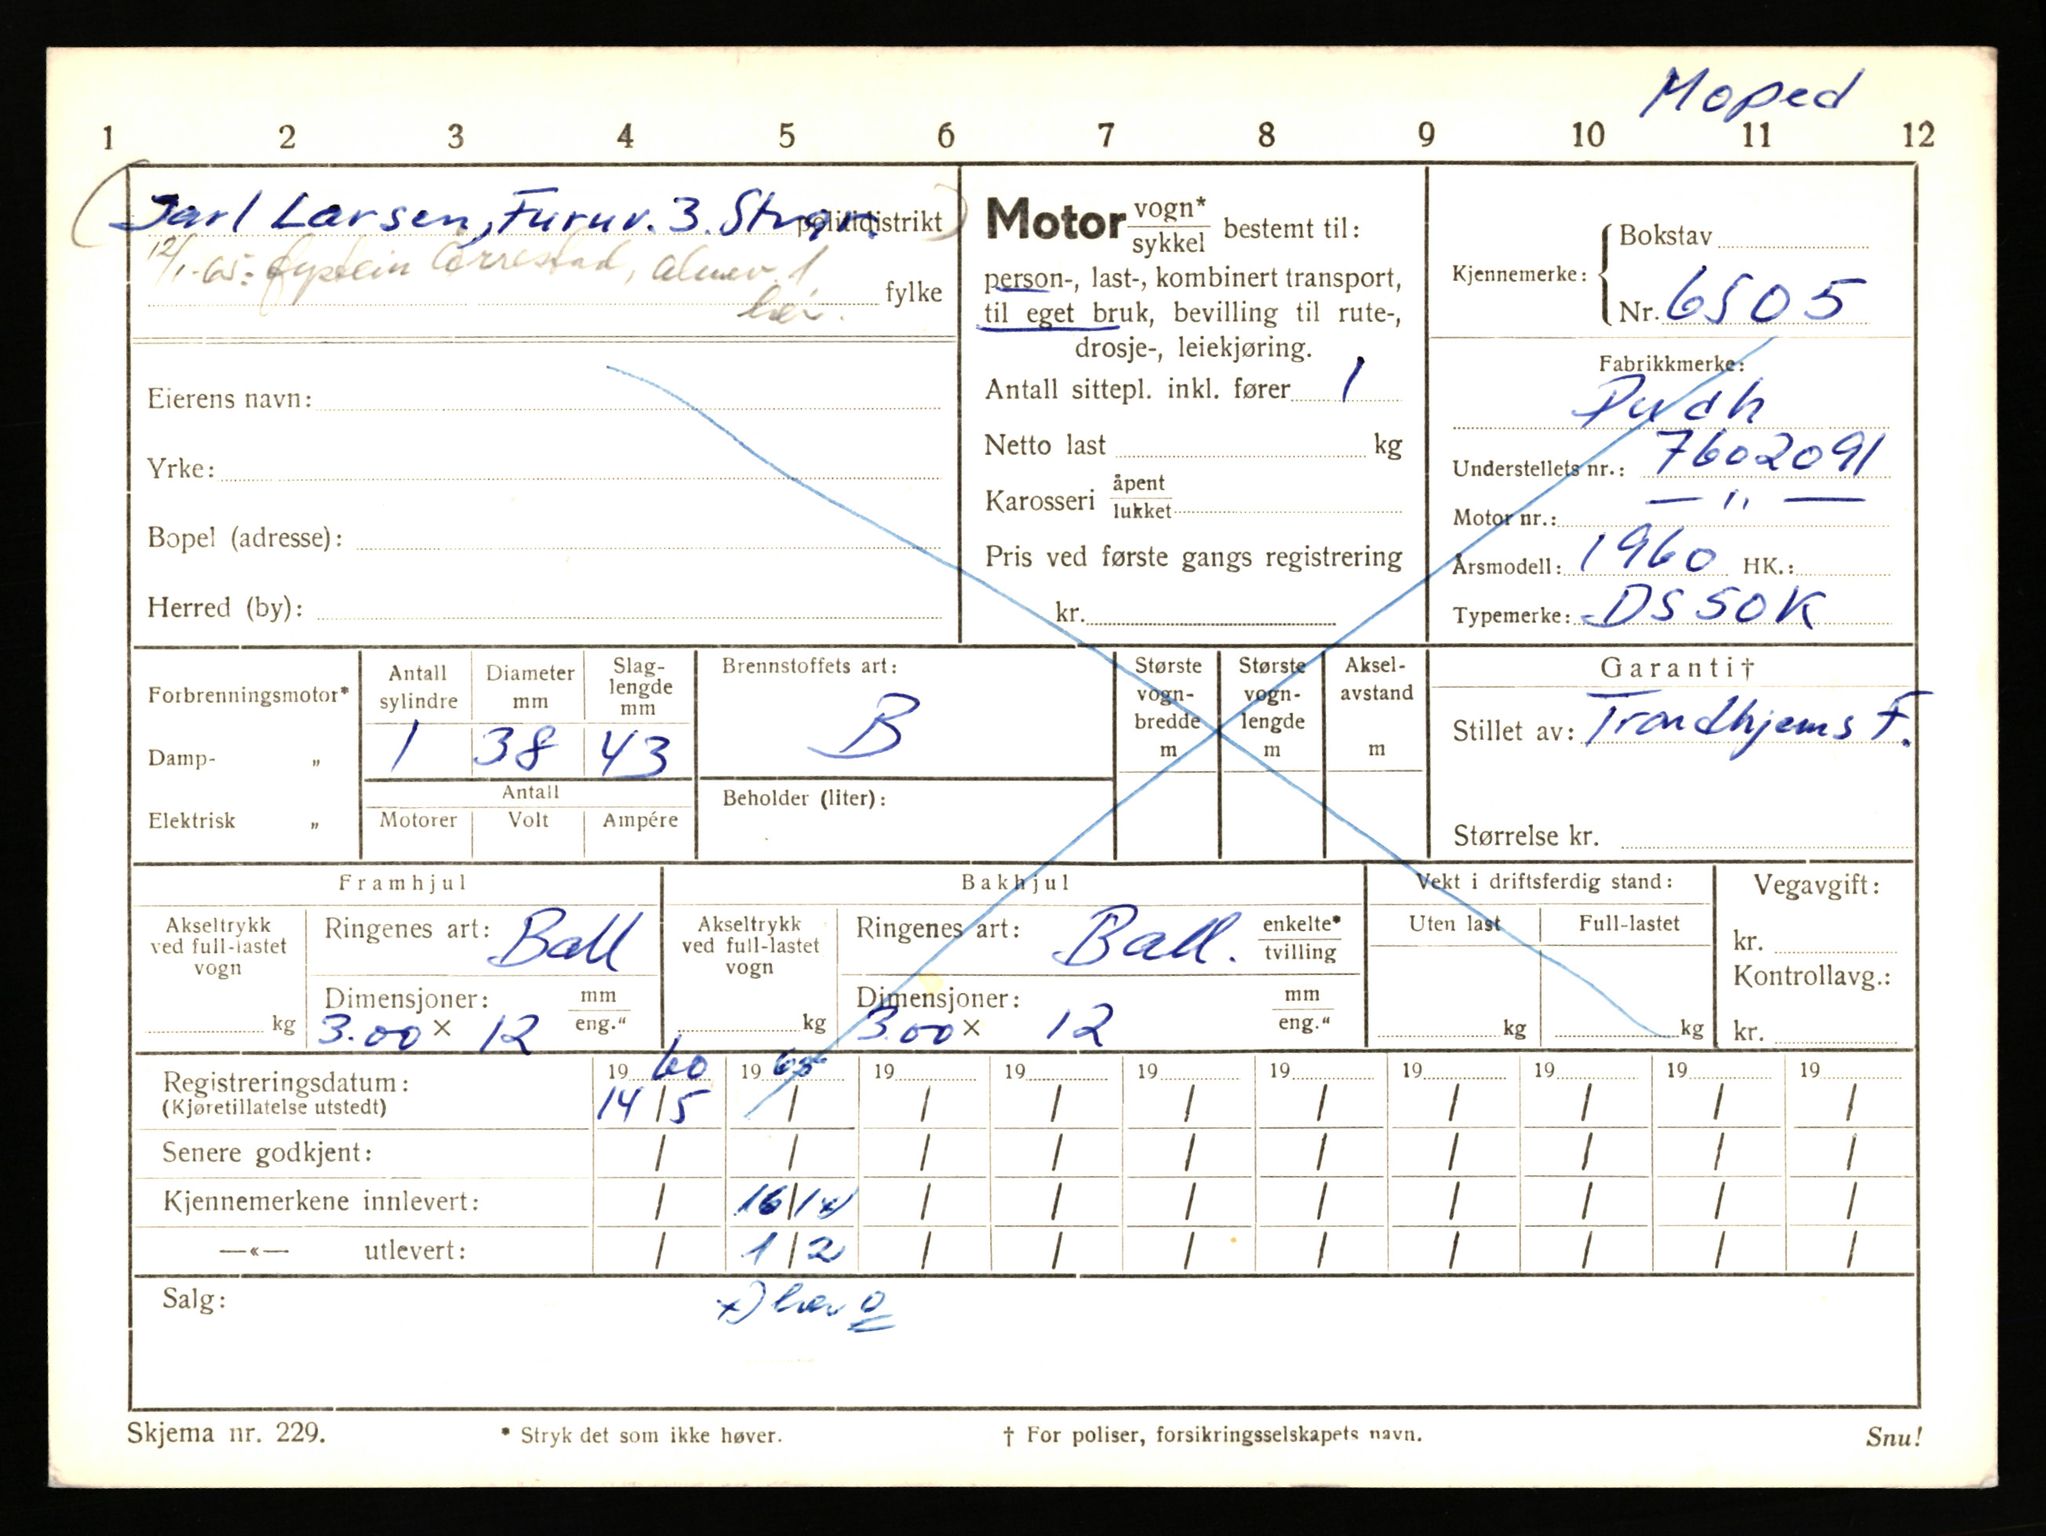 Moped
1 2 3 4 5 6 7 8 9 10 11 12
(Jarl Larsen, Furuv. 3. Stvgr.) politidistrikt
12/1-65: Øystein Orrestad, almev. 1 fylke
her.
Eierens navn:
Yrke:
Bopel (adresse):
Herred (by):
Motor vogn*/sykkel bestemt til:
person-, last-, kombinert transport,
til eget bruk, bevilling til rute-,
drosje-, leiekjøring.
Antall sittepl. inkl. fører 1
Netto last kg
Karosseri åpent/lukket
Pris ved første gangs registrering
kr.
Kjennemerke: Bokstav
Nr. 6505
Fabrikkmerke:
Puch
Understellets nr.: 7602091
Motor nr.: — " —
Årsmodell: 1960 HK.:
Typemerke: DS 50K
Forbrenningsmotor*
Damp- „
Elektrisk „
Antall sylindre Diameter mm Slag-lengde mm
1 38 43
Antall
Motorer Volt Ampére
Brennstoffets art:
B
Beholder (liter):
Største vogn-bredde m
Største vogn-lengde m
Aksel-avstand m
Garanti†
Stillet av: Trondhjems F.
Størrelse kr.
Framhjul
Akseltrykk ved full-lastet vogn kg
Ringenes art: Ball
Dimensjoner: mm/eng."
3.00 × 12
Bakhjul
Akseltrykk ved full-lastet vogn kg
Ringenes art: Ball. enkelte*/tvilling
Dimensjoner: mm/eng."
3.00 × 12
Vekt i driftsferdig stand:
Uten last Full-lastet
kg kg
Vegavgift:
kr.
Kontrollavg.:
kr.
Registreringsdatum: 19 60 19 65 19 19 19 19 19 19 19 19
(Kjøretillatelse utstedt) 14/5 / / / / / / / / /
Senere godkjent: / / / / / / / / / /
Kjennemerkene innlevert: / 16/1 x) / / / / / / / /
—«— utlevert: / 1/2 / / / / / / / /
Salg: x) her
Skjema nr. 229. * Stryk det som ikke høver. † For poliser, forsikringsselskapets navn. Snu!